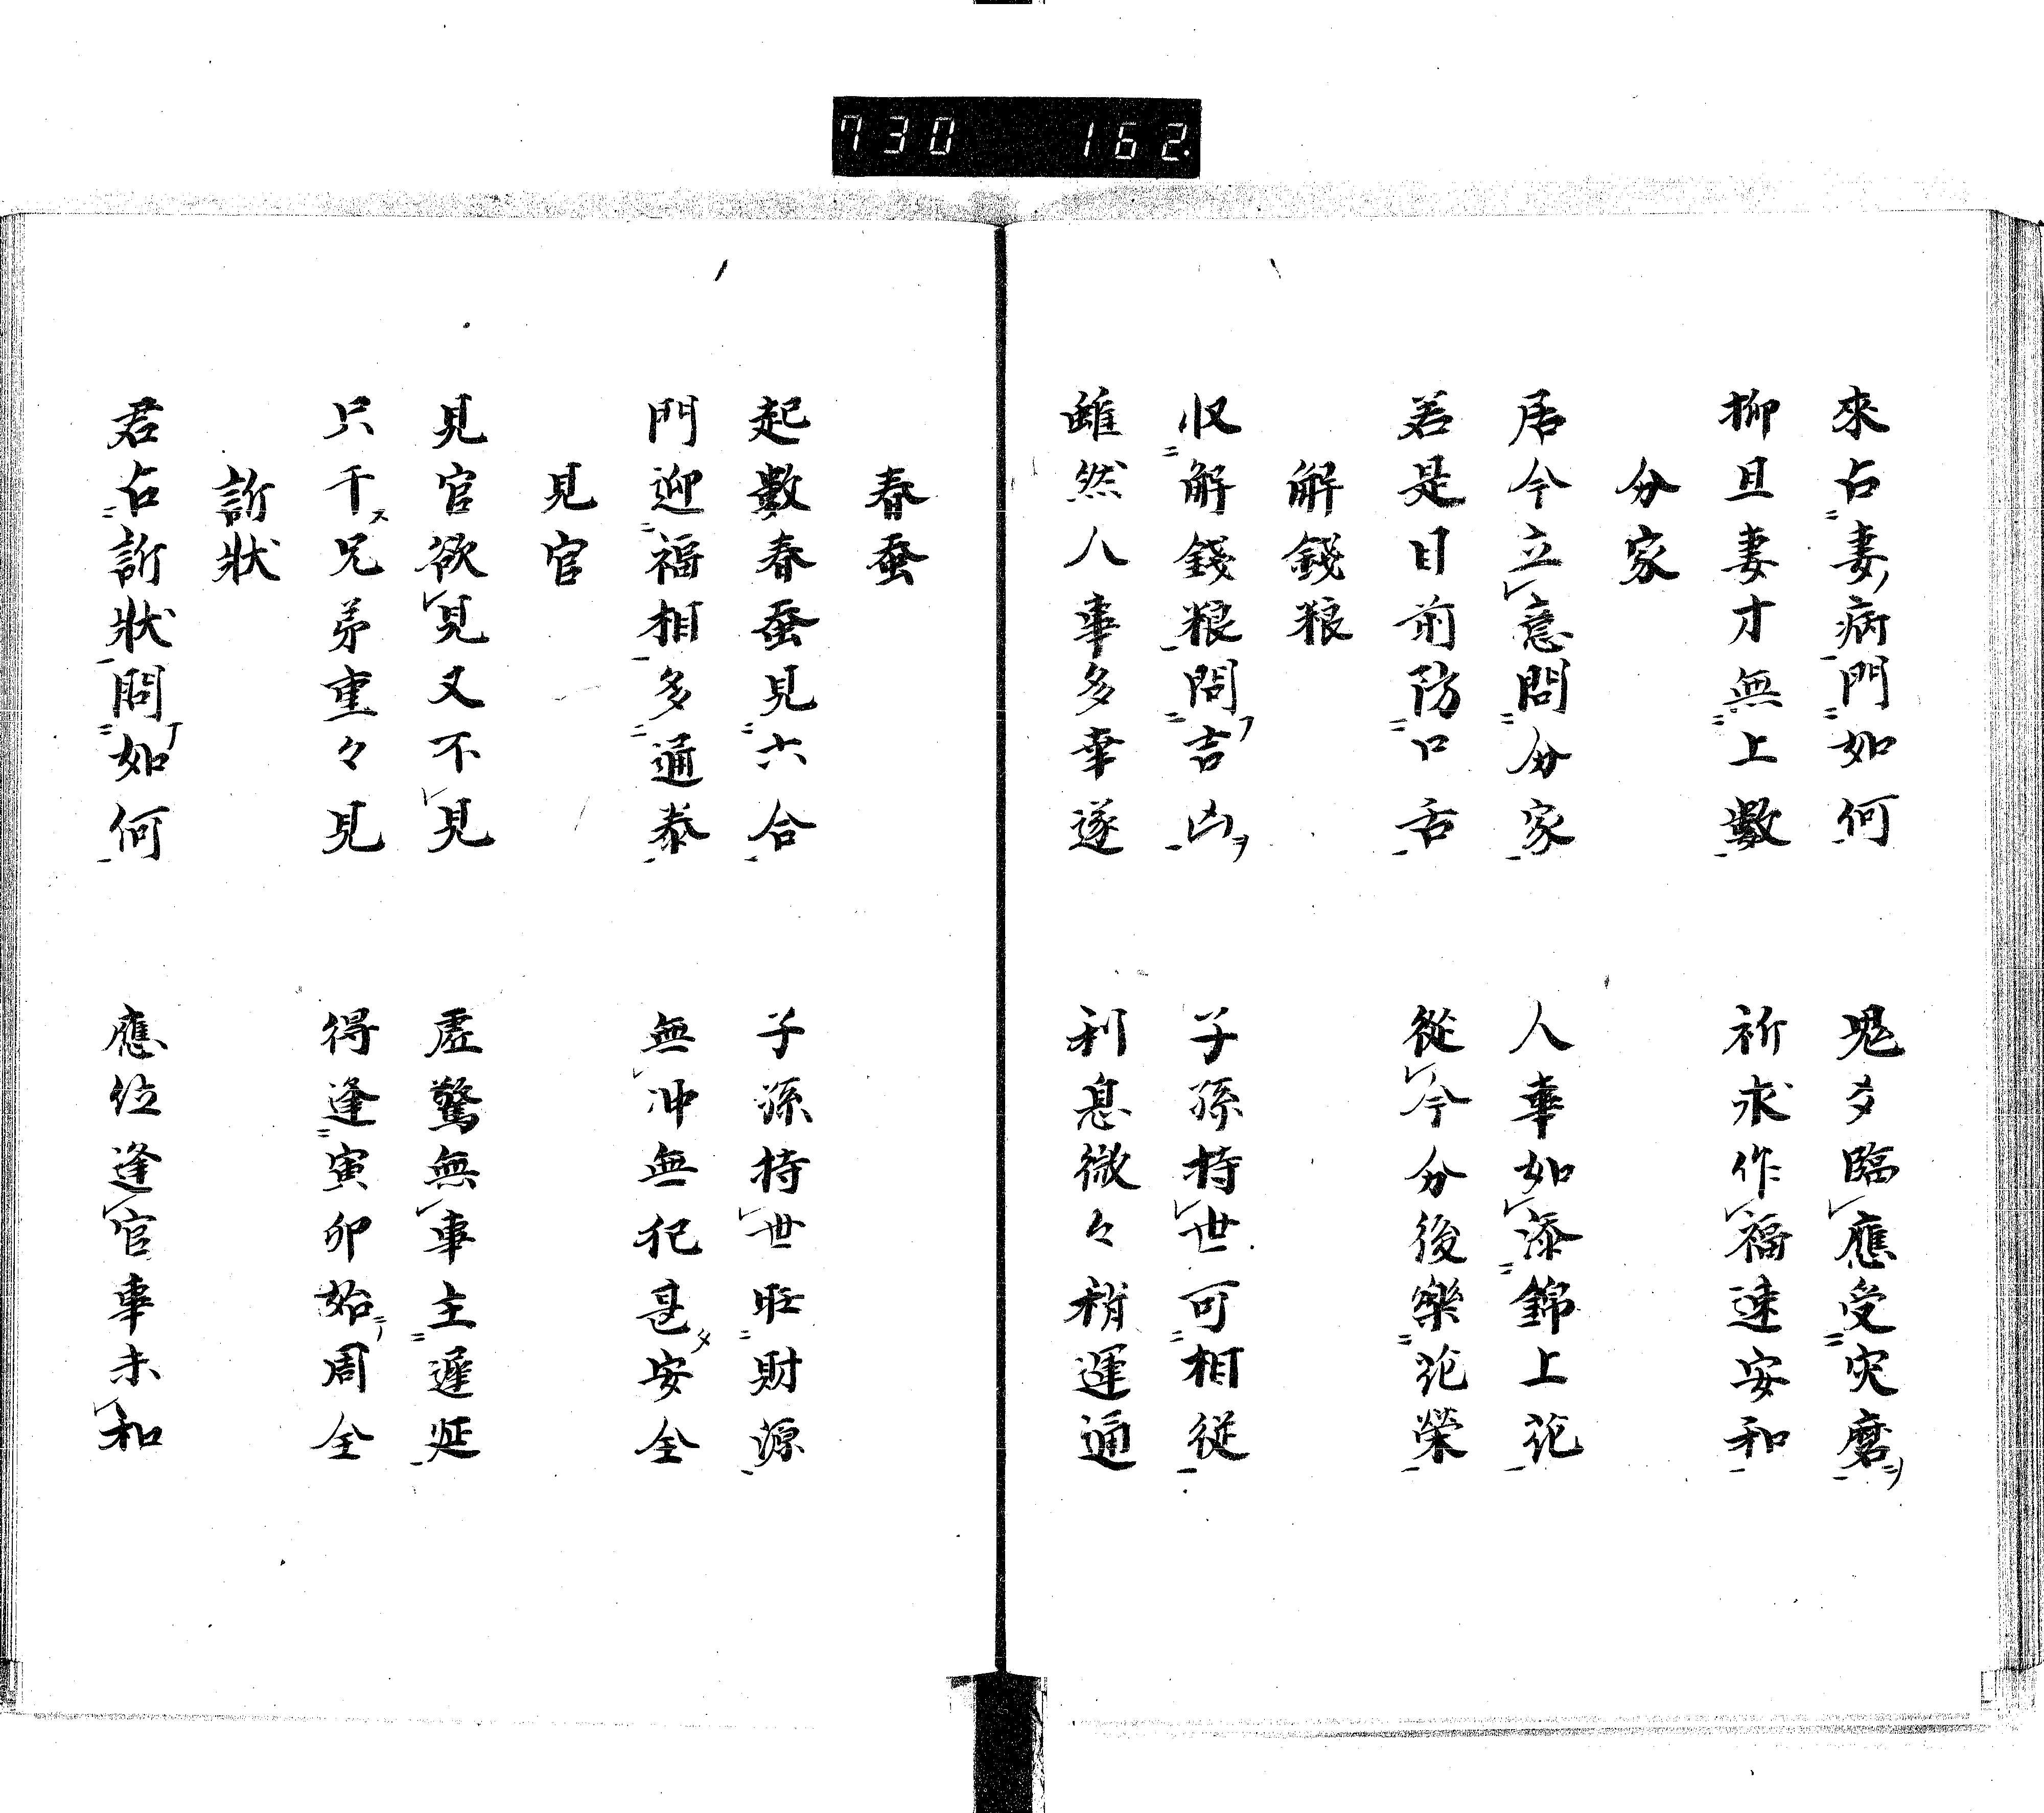 730 162
來占妻病門如何 鬼夕臨應受灾磨
抑且妻才無上數 祈求作福速安和
分家
居今立意問分家 人事如添錦上花
若是日前防口舌 從今分後樂花榮
解錢粮
収解錢粮問吉凶 子孫持世可相從
雖然人事多幸遂 利息微々稍運通
春蚕
起數春蚕見六合 子孫持世旺財源
門迎福相多通泰 無冲無犯甚安全
見官
見官欲見又不見 虛驚無事主遲延
只干兄弟重々見 得逢寅卯始周全
訴狀
君占訴狀問如何 應位逢官事未和